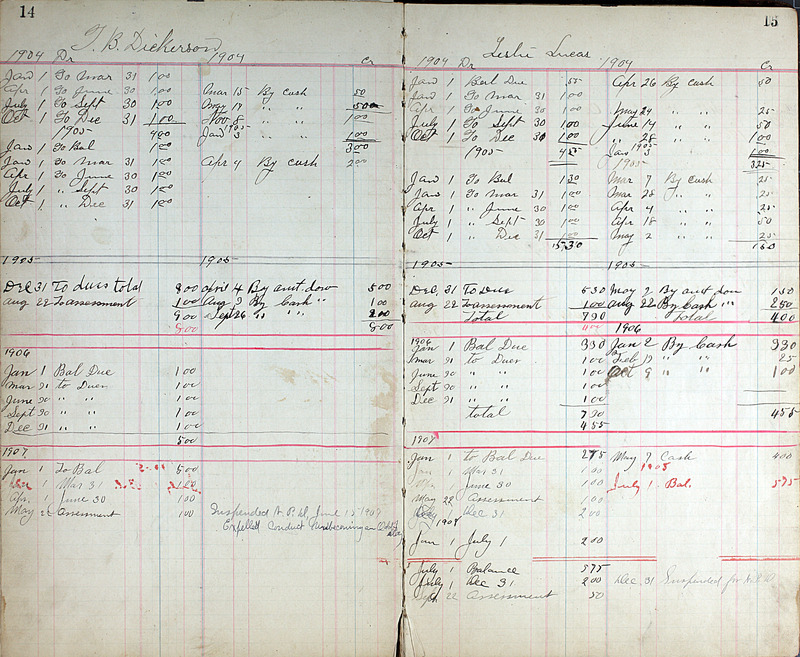 14
T. B. Dickerson
1904 Dr 1904 Cr
Jan 1 To Mar 31 1 00
Apr 1 To June 30 1 00 Mar 15 By cash 50
July 1 To Sept 30 1 00 May 17 " " 500
Oct 1 To Dec 31 1 00 Nov 8 " " 1 00
1905 400 Jan 3 1905 1 00
Jan 1 To Bal 1 00 300
Jan 1 To Mar 31 1 00 Apr 4 By cash 200
Apr 1 To June 30 1 00
July 1 " Sept 30 1 00
Oct 1 " Dec 31 1 00
1905 1905
Dec 31 To dues total 800 april 4 By amt down 500
aug 22 To assessment 100 Aug 9 By Cash " 100
900 Sept 26 " " 200
800 800
1906
Jan 1 Bal Due 100
Mar 31 to Dues 100
June 30 " " 100
Sept 30 " " 100
Dec 31 " " 100
500
1907
Jan 1 To Bal 500
1 Mar 31
Apr. 1 June 30 100
May 22 Assessment 100 Suspended N. P. D. June 15 1907
Expelled Conduct Unbecoming an
15
Leslie Lucas
1904 Dr 1904 Cr
Jan 1 Bal Due 55 Apr 26 By cash 50
Jan 1 To Mar 31 1 00
Apr 1 To June 30 1 00 May 24 " " 25
July 1 To Sept 30 1 00 June 14 " " 50
Oct 1 To Dec 30 1 00 " 28 " " 1 00
1905 455 Jan 3 1905 1 00
1905 325
Jan 1 To Bal 1 30 Mar 7 By cash 25
Jan 1 To Mar 31 1 00 Mar 28 " " 25
Apr 1 " June 30 1 00 Apr 4 " " 25
July 1 " Sept 30 1 00 Apr 18 " " 50
Oct 1 " Dec 31 1 00 May 2 " " 25
530 150
1905 1905
Dec, 31 To Dues 530 May 2 By amt down 150
aug 22 To assessment 100 aug 22 By Cash " " 250
Total 730 Total 400
1906
1906
Jan 1 Bal Due 330 Jan 2 By Cash 330
Mar 31 to Dues 100 Feb 13 " " 25
June 30 " " 100 Oct 9 " " 100
Sept 30 " " 100
Dec 31 " " 100
total 730 455
455
1907
Jan 1 to Bal Due 275 May 7 Cash 400
Jan 1 Mar 31 100 1908
Apr 1 June 30 100 July 1 Bal. 575
May 22 Assessment 100
July 1 Dec 31 200
1908
Jan 1 July 1 200
July 1 Balance 575
July 1 Dec 31 200 Dec. 31 Suspended for N. P. D.
Sept 22 Assessment 50